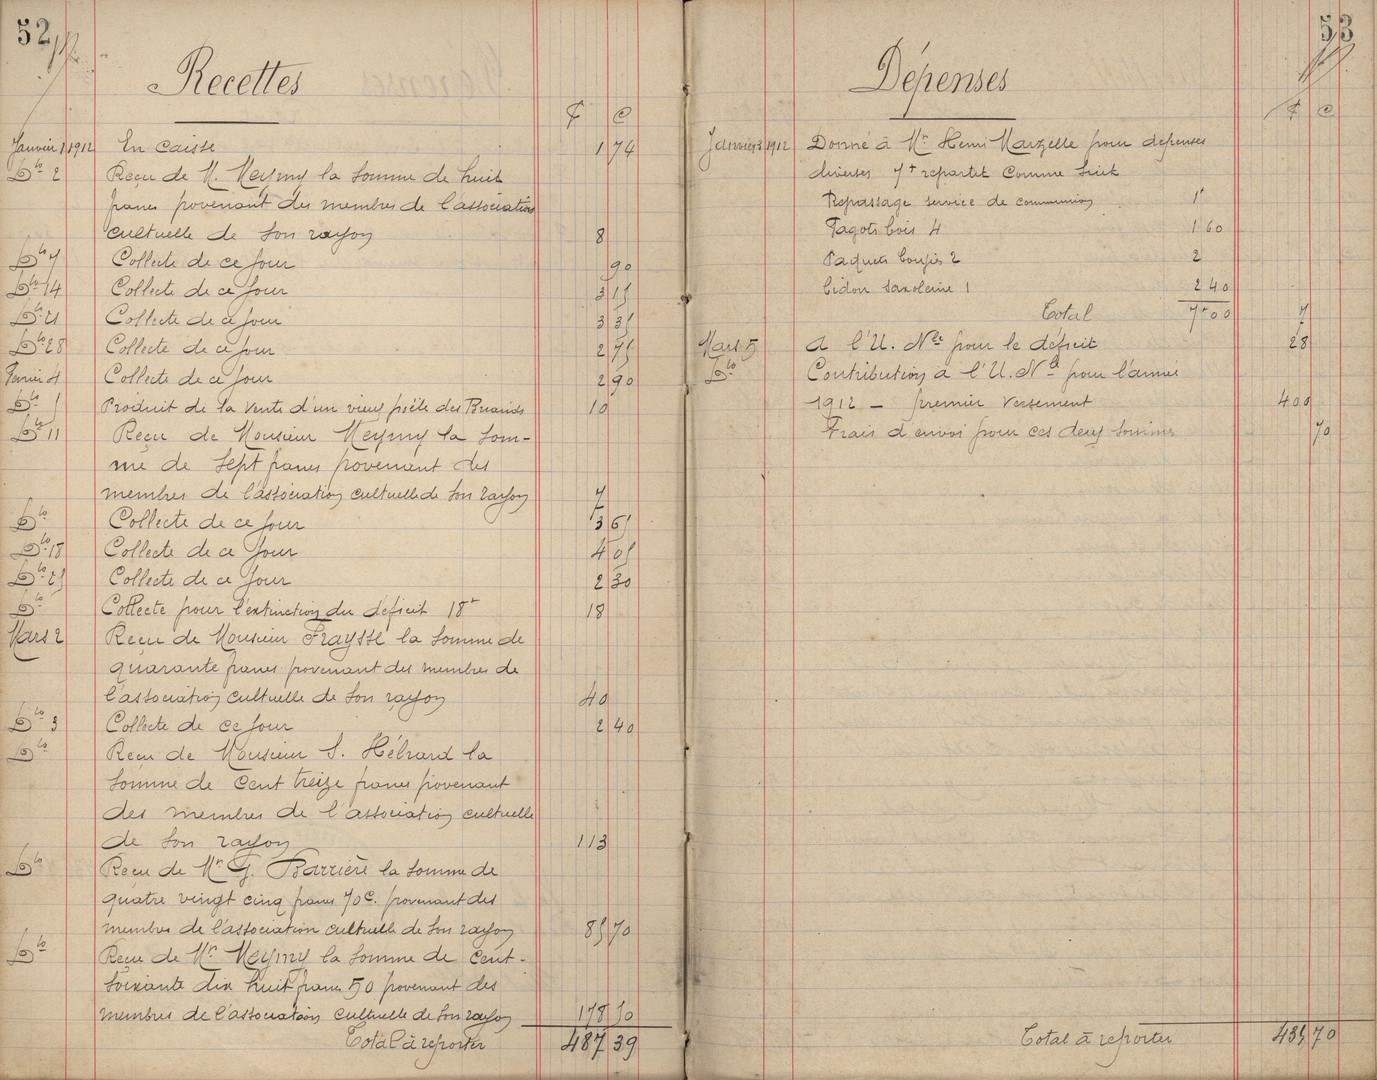 52
Recettes
F C
Janvier 1 1912 En caisse 1 74
Dto 2 Reçu de M. Meymy la somme de huit
francs provenant des membres de l'association
cultuelle de son rayon 8
Dto 7 Collecte de ce jour 90
Dto 14 Collecte de ce jour 3 15
Dto 21 Collecte de ce jour 3 35
Dto 28 Collecte de ce jour 2 75
Fevrier 4 Collecte de ce jour 2 90
Dto 5 Produit de la vente d'un vieux poêle des Briands 10
Dto 11 Reçu de Monsieur Meymy la som-
me de sept francs provenant des
membres de l'association cultuelle de son rayon 7
Dto Collecte de ce jour 3 65
Dto 18 Collecte de ce jour 4 05
Dto 25 Collecte de ce jour 2 30
Dto Collecte pour l'extinction du déficit 18f 18
Mars 2 Reçu de Monsieur Fraysse la somme de
quarante francs provenant des membres de
l'association cultuelle de son rayon 40
Dto 3 Collecte de ce jour 2 40
Dto Reçu de Monsieur S. Hébrard la
somme de cent treize francs provenant
des membres de l'association cultuelle
de son rayon 113
Dto Reçu de Mr G. Barrière la somme de
quatre vingt cinq francs 70c. provenant des
membres de l'association cultuelle de son rayon 85 70
Dto Reçu de Mr Meymy la somme de cent-
soixante dix huit francs 50 provenant des
membres de l'association cultuelle de son rayon 178 50
Total à reporter 487 39
53
Dépenses
F C
Janvier 3 1912 Donné à Mr Henri Marzelle pour dépenses
diverses 7f repartet comme suit
Repassage service de communion 1f
Fagots bois 4 1 60
Paquets bougies 2 2
bidon saxoleine 1 2 40
Total 7f00 7
Mars 5 à l'U. Nle pour le déficit 28
Dto Contribution à l'U. Nle pour l'année
1912 — premier versement 400
Frais d'envoi pour ces deux sommes 70
Total à reporter 435 70